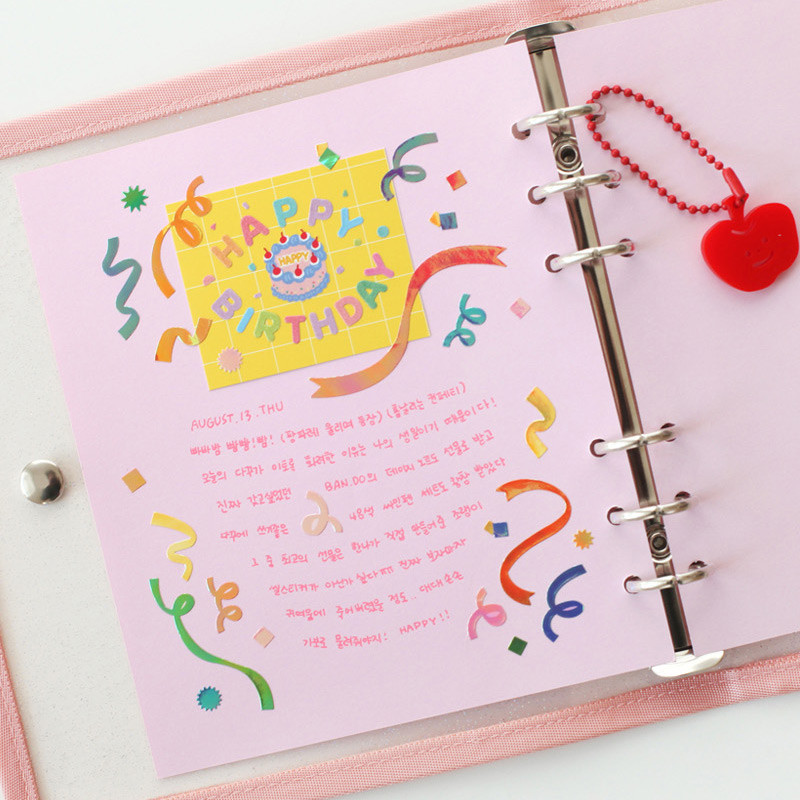 HAPPY
HAPPY
BIRTHDAY
AUGUST.13.THU
빠바밤 빰빰!빰! (팡파레 울리며 등장) (흩날리는 컨페티)
오늘의 다꾸가 이토록 화려한 이유는 나의 생일이기 때문이다!
진짜 갖고싶었던 BAN.DO의 데이지 선물로 받고
나꾸에 쓰 세트도 잔뜩 받았다
그 중 최고의 선물은 한나가 직접 만들어준
씰스티커가 아닌가 싶다 진짜 보자마자
귀여움에 죽어버렸을 정도.. 대대손손
가보로 물려줘야지! HAPPY!!